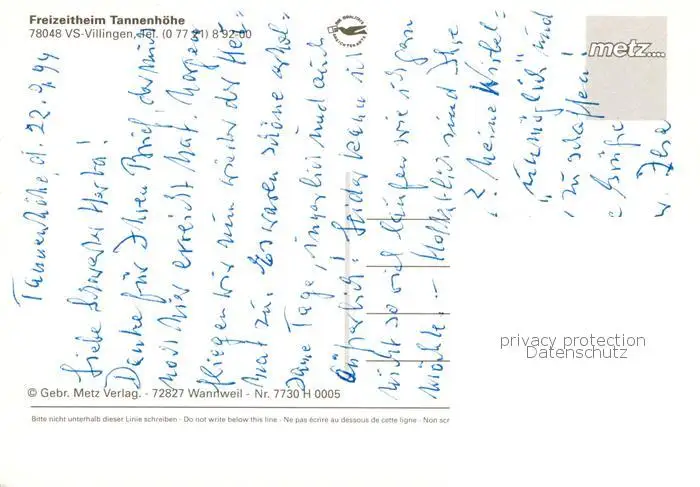 Freizeitheim Tannenhöhe
78048 VS-Villingen, Tel. (0 77 21) 8 92-00
metz....
Tannenhöhe, d. 22.9.94
Liebe Schwester Herta!
Danke für Ihren Brief, der mich
noch hier erreicht hat. Morgen
fliegen wir nun wieder der Hei=
mat zu. Es waren schöne erhol=
same Tage, innerlich und auch
äußerlich! Leider kann ich
nicht so viel laufen wie ich gern
möchte. – Hoffentlich sind Ihre
? Meine Wirbel=
"unmöglich" und
zu schaffen!
Grüße
Ilse
privacy protection
Datenschutz
© Gebr. Metz Verlag. - 72827 Wannweil - Nr. 7730 H 0005
Bitte nicht unterhalb dieser Linie schreiben - Do not write below this line - Ne pas écrire au dessous de cette ligne - Non scr